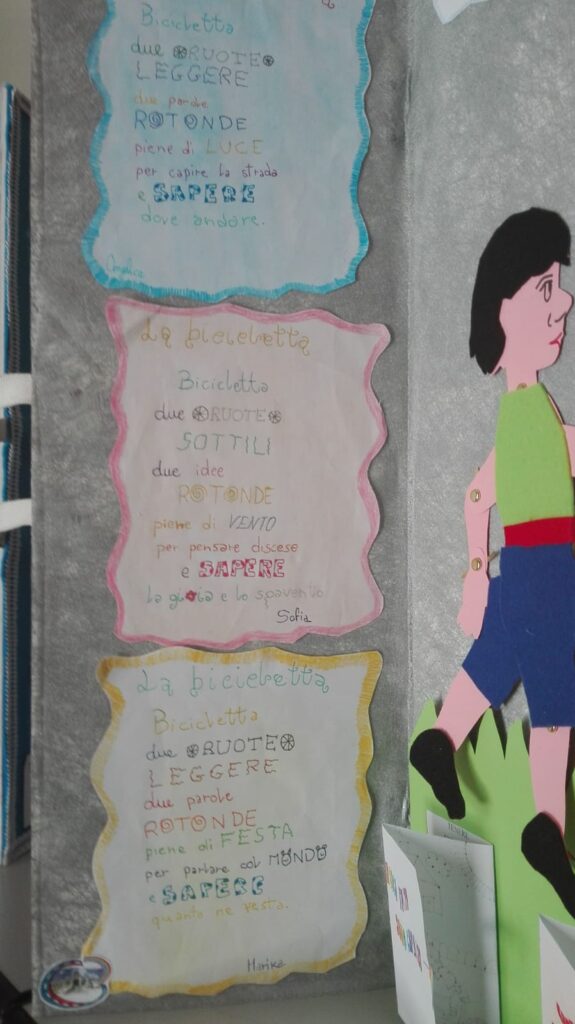 Bicicletta
due RUOTE
LEGGERE
due parole
ROTONDE
piene di LUCE
per capire la strada
e SAPERE
dove andare.
Angelica
La bicicletta
Bicicletta
due RUOTE
SOTTILI
due idee
ROTONDE
piene di VENTO
per pensare discese
e SAPERE
la gioia e lo spavento
Sofia
La bicicletta
Bicicletta
due RUOTE
LEGGERE
due parole
ROTONDE
piene di FESTA
per parlare col MONDO
e SAPERE
quanto ne resta.
Marika